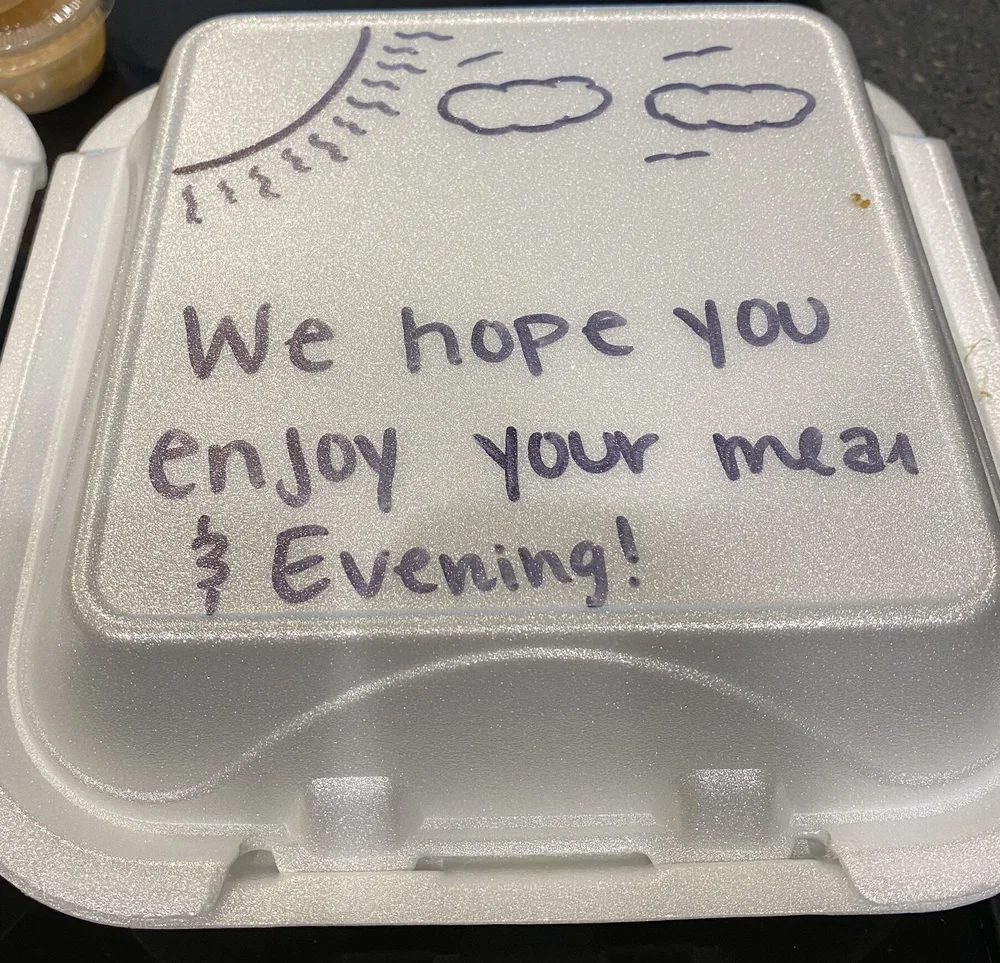 We hope you
enjoy your meal
& Evening!